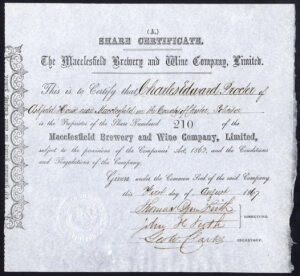 (A.)
SHARE CERTIFICATE.
The Macclesfield Brewery and Wine Company, Limited.
This is to Certify that Charles Edward Procter of
House near Macclesfield in the County of Chester
is the Proprietor of the Share Numbered 210 of the
Macclesfield Brewery and Wine Company, Limited,
subject to the provisions of the Companies' Act, 1862, and the Conditions
and Regulations of the Company.
Given under the Common Seal of the said Company
this First day of August 1867
Thomas
John
DIRECTORS.
Clarke
SECRETARY.